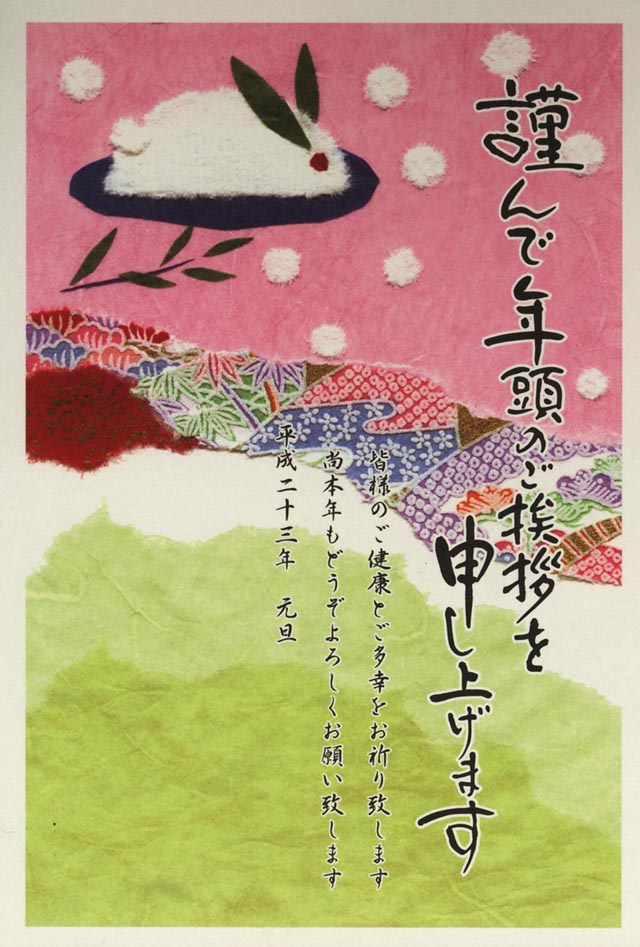 謹んで年頭のご挨拶を
申し上げます
皆様のご健康とご多幸をお祈り致します
尚本年もどうぞよろしくお願い致します
平成二十三年 元旦